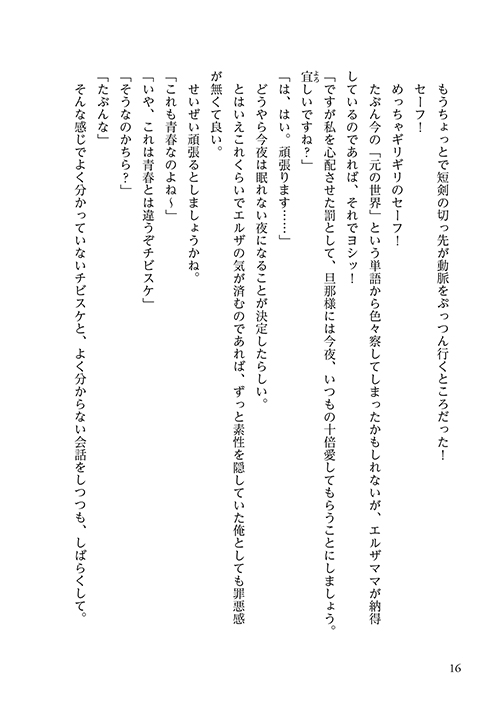 もうちょっとで短剣の切っ先が動脈をぷっつん行くところだった！
セーフ！
めっちゃギリギリのセーフ！
たぶん今の「元の世界」という単語から色々察してしまったかもしれないが、エルザママが納得
しているのであれば、それでヨシッ！
「ですが私を心配させた罰として、旦那様には今夜、いつもの十倍愛してもらうことにしましょう。
宜しいですね？」
よろ
「は、はい。頑張ります……」
どうやら今夜は眠れない夜になることが決定したらしい。
とはいえこれくらいでエルザの気が済むのであれば、ずっと素性を隠していた俺としても罪悪感
が無くて良い。
せいぜい頑張るとしましょうかね。
「これも青春なのよね～」
「いや、これは青春とは違うぞチビスケ」
「そうなのかちら？」
「たぶんな」
そんな感じでよく分かっていないチビスケと、よく分からない会話をしつつも、しばらくして。
16